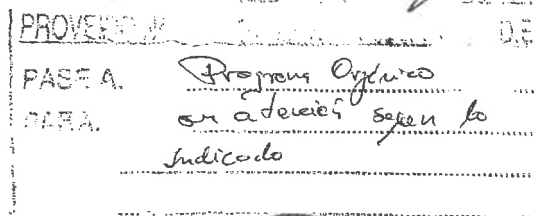 PROVEIDO N
PASE A. Programa Orgánico
PARA. su atención según lo
indicado